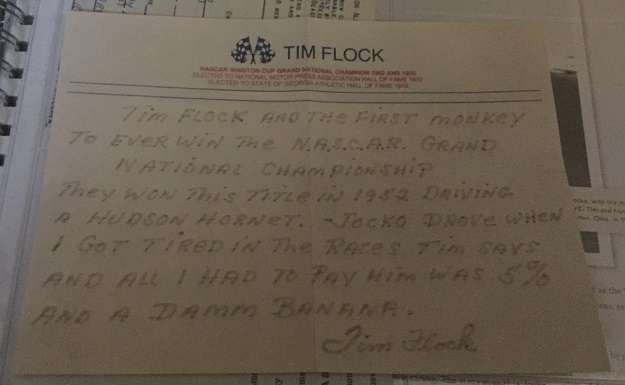 TIM FLOCK
NASCAR WINSTON CUP GRAND NATIONAL CHAMPION 1952 AND 1955
ELECTED TO NATIONAL MOTOR PRESS ASSOCIATION HALL OF FAME 1972
ELECTED TO STATE OF GEORGIA ATHLETIC HALL OF FAME
TIM FLOCK AND THE FIRST MONKEY
TO EVER WIN THE N.A.S.C.A.R. GRAND
NATIONAL CHAMPIONSHIP
THEY WON THIS TITLE IN 1952 DRIVING
A HUDSON HORNET. -JOCKO DROVE WHEN
I GOT TIRED IN THE RACES TIM SAYS
AND ALL I HAD TO PAY HIM WAS 5%
AND A DAMM BANANA.
Tim Flock